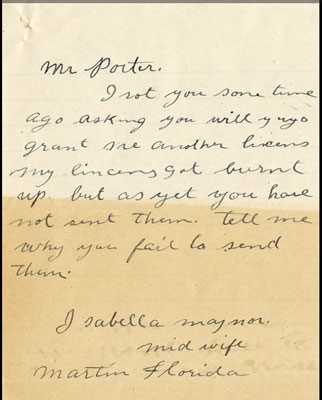 Mr Porter.
I rot you some time
ago asking you will y
grant me another licens
my lincens got burnt
up. but as yet you have
not sent them. tell me
why you fail to send
them.
Isabella maynor.
mid wife
Martin Florida